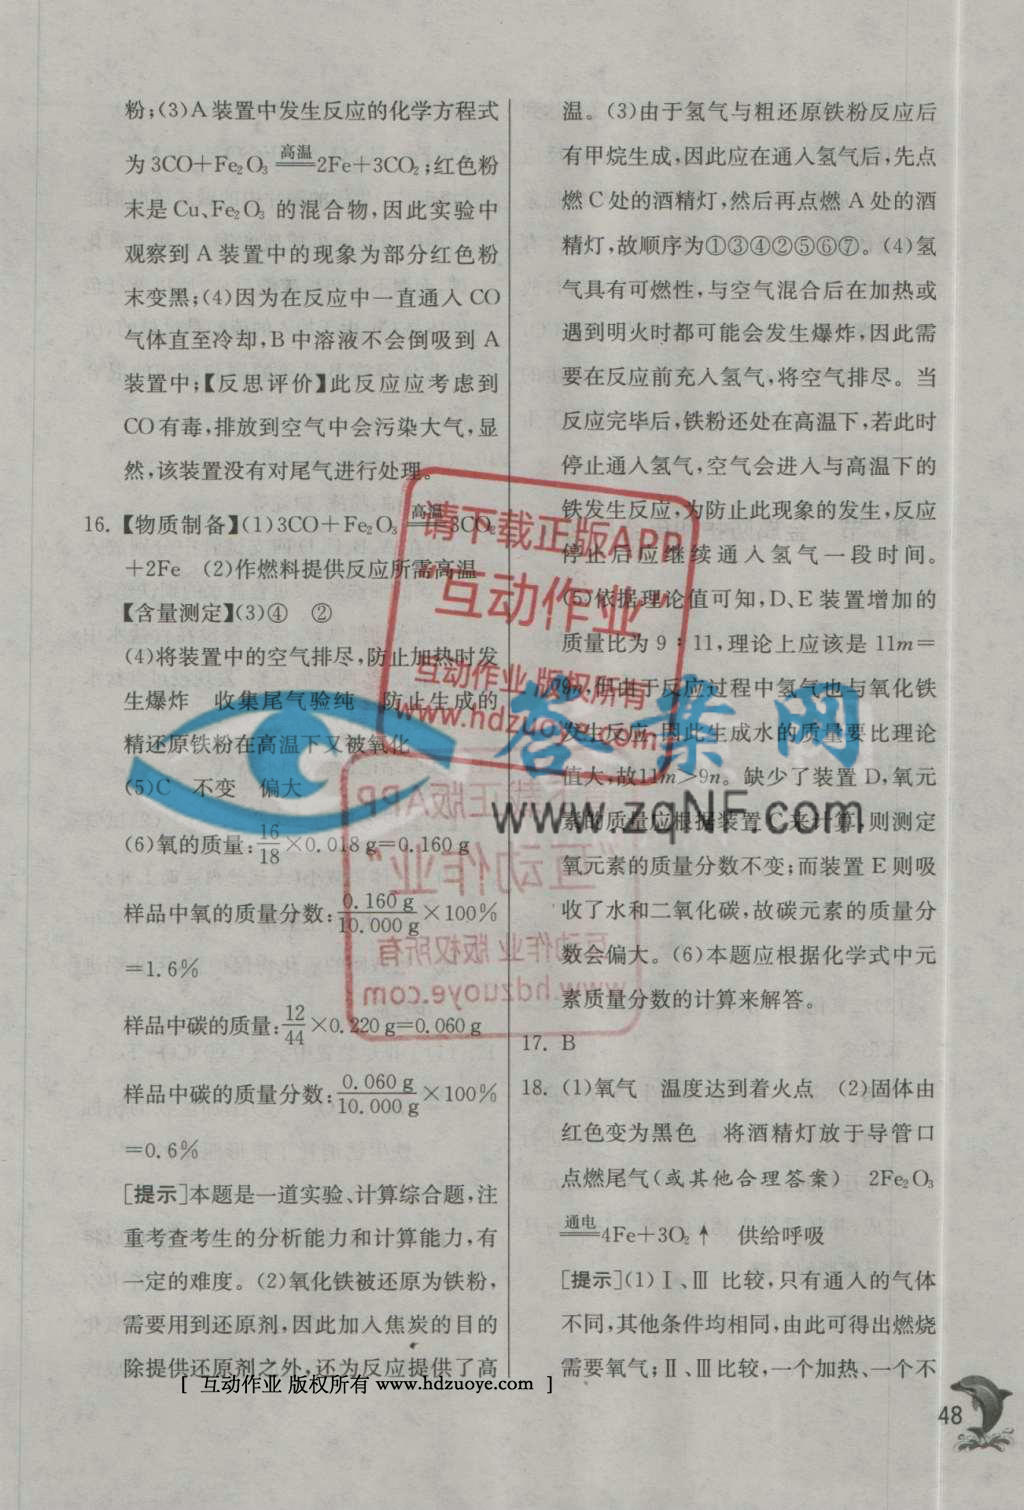 粉;(3)A装置中发生反应的化学方程式
为3CO+Fe₂O₃ 高温 2Fe+3CO₂;红色粉
末是Cu、Fe₂O₃ 的混合物,因此实验中
观察到A装置中的现象为部分红色粉
末变黑;(4)因为在反应中一直通入CO
气体直至冷却,B中溶液不会倒吸到A
装置中;【反思评价】此反应应考虑到
CO有毒,排放到空气中会污染大气,显
然,该装置没有对尾气进行处理。
16.【物质制备】(1)3CO+Fe₂O₃ 高温 3CO₂
+2Fe (2)作燃料提供反应所需高温
【含量测定】(3)④ ②
(4)将装置中的空气排尽,防止加热时发
生爆炸 收集尾气验纯 防止生成的
精还原铁粉在高温下又被氧化
(5)C 不变 偏大
(6)氧的质量:16/18×0.018 g=0.160 g
样品中氧的质量分数:0.160 g/10.000 g×100%
=1.6%
样品中碳的质量:12/44×0.220 g=0.060 g
样品中碳的质量分数:0.060 g/10.000 g×100%
=0.6%
[提示]本题是一道实验、计算综合题,注
重考查考生的分析能力和计算能力,有
一定的难度。(2)氧化铁被还原为铁粉,
需要用到还原剂,因此加入焦炭的目的
除提供还原剂之外,还为反应提供了高
温。(3)由于氢气与粗还原铁粉反应后
有甲烷生成,因此应在通入氢气后,先点
燃C处的酒精灯,然后再点燃A处的酒
精灯,故顺序为①③④②⑤⑥⑦。(4)氢
气具有可燃性,与空气混合后在加热或
遇到明火时都可能会发生爆炸,因此需
要在反应前充入氢气,将空气排尽。当
反应完毕后,铁粉还处在高温下,若此时
停止通入氢气,空气会进入与高温下的
铁发生反应,为防止此现象的发生,反应
停止后应继续通入氢气一段时间。
(5)依据理论值可知,D、E装置增加的
质量比为9∶11,理论上应该是11m=
9n,但由于反应过程中氢气也与氧化铁
发生反应,因此生成水的质量要比理论
值大,故11m>9n。缺少了装置D,氧元
素的质量应根据装置C来计算,则测定
氧元素的质量分数不变;而装置E则吸
收了水和二氧化碳,故碳元素的质量分
数会偏大。(6)本题应根据化学式中元
素质量分数的计算来解答。
17. B
18. (1)氧气 温度达到着火点 (2)固体由
红色变为黑色 将酒精灯放于导管口
点燃尾气(或其他合理答案) 2Fe₂O₃
通电 4Fe+3O₂↑ 供给呼吸
[提示](1)Ⅰ、Ⅲ比较,只有通入的气体
不同,其他条件均相同,由此可得出燃烧
需要氧气;Ⅱ、Ⅲ比较,一个加热、一个不
请下载正版APP
"互动作业"
互动作业 版权所有
www.hdzuoye.com
答案网
www.zqNF.com
[ 互动作业 版权所有 www.hdzuoye.com ]
48